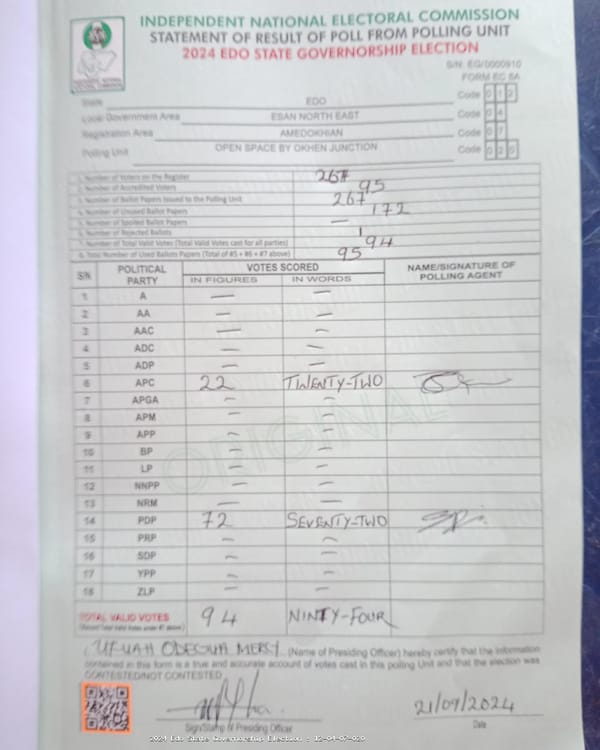 INDEPENDENT NATIONAL ELECTORAL COMMISSION
STATEMENT OF RESULT OF POLL FROM POLLING UNIT
2024 EDO STATE GOVERNORSHIP ELECTION
S/N: EG/0000910
FORM EC 8A
State EDO Code 0 1 2
Local Government Area ESAN NORTH EAST Code 0 4
Registration Area AMEDOKHIAN Code 0 7
Polling Unit OPEN SPACE BY OKHEN JUNCTION Code 0 2 0
1. Number of Voters on the Register 267
2. Number of Accredited Voters 95
3. Number of Ballot Papers Issued to the Polling Unit 267
4. Number of Unused Ballot Papers 172
5. Number of Spoiled Ballot Papers —
6. Number of Rejected Ballots 1
7. Number of Total Valid Votes (Total Valid Votes cast for all parties) 94
8. Total Number of Used Ballots Papers (Total of #5 + #6 + #7 above) 95
S/N POLITICAL PARTY VOTES SCORED NAME/SIGNATURE OF POLLING AGENT
IN FIGURES IN WORDS
1 A — —
2 AA — —
3 AAC — —
4 ADC — —
5 ADP — —
6 APC 22 TWENTY-TWO
7 APGA — —
8 APM — —
9 APP — —
10 BP — —
11 LP — —
12 NNPP — —
13 NRM — —
14 PDP 72 SEVENTY-TWO
15 PRP — —
16 SDP — —
17 YPP — —
18 ZLP — —
ORIGINAL
TOTAL VALID VOTES 94 NINTY-FOUR
MERCY (Name of Presiding Officer) hereby certify that the information
contained in this form is a true and accurate account of votes cast in this polling Unit and that the election was
CONTESTED/NOT CONTESTED
21/09/2024
Sign/Stamp of Presiding Officer Date
2024 Edo State Governorship Election - 12-04-07-020